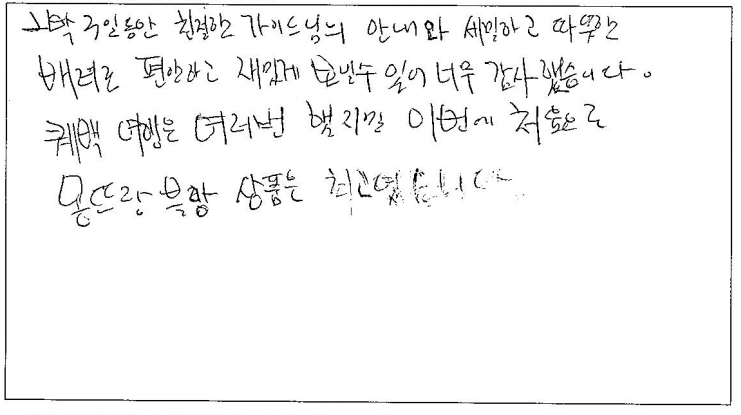 2박 3일동안 친절한 가이드님의 안내와 세밀하고 따뜻한
배려로 편안하고 재밌게 보낼수 있어 너무 감사했습니다.
퀘백 여행은 여러번 했지만 이번에 처음으로
몽뜨랑 블랑 상품은 최고였습니다